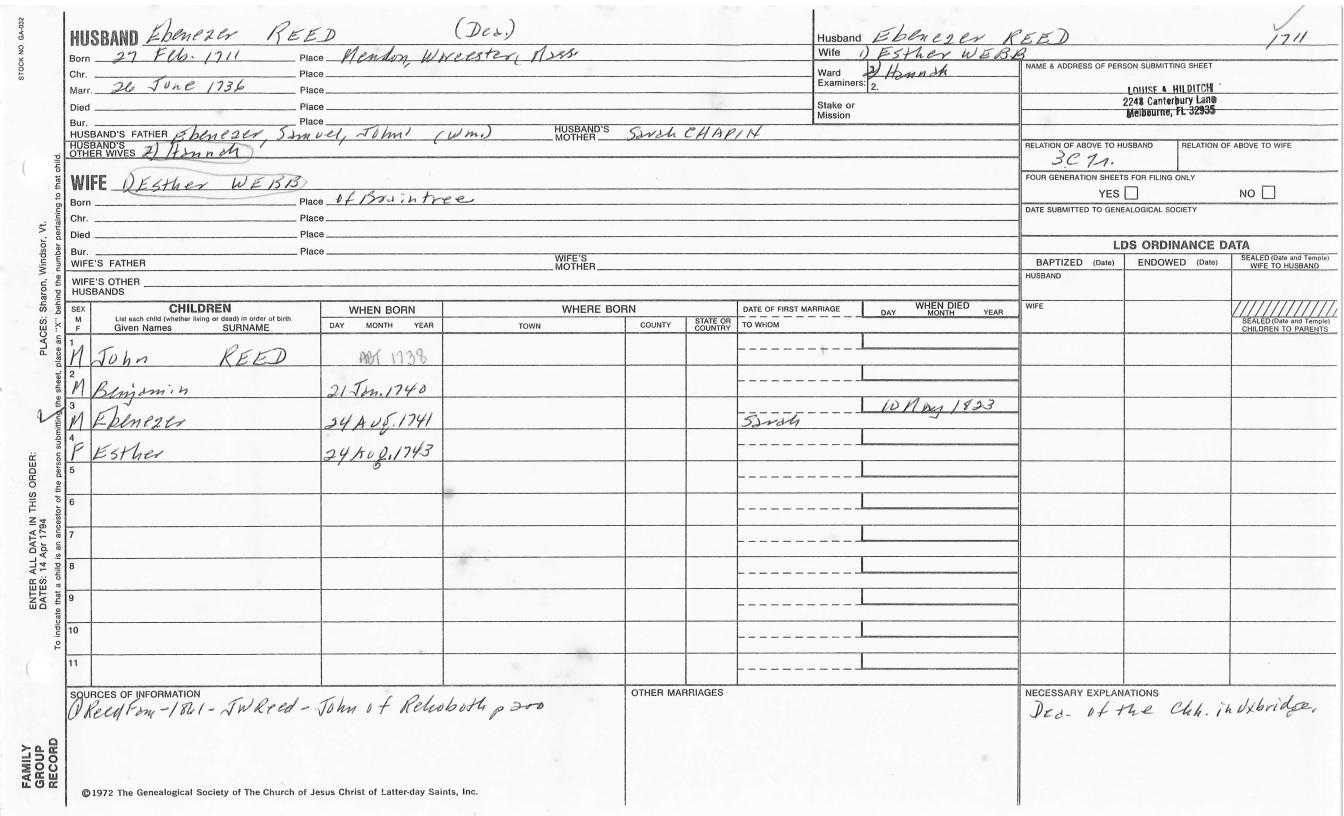 STOCK NO. GA-032
HUSBAND Ebenezer REED (Dea.)
Born 27 Feb. 1711 Place Mendon, Worcester, Mass
Chr. Place
Marr. 26 June 1736 Place
Died Place
Bur. Place
HUSBAND'S FATHER Ebenezer, Samuel, John1 (Wm.) HUSBAND'S MOTHER Sarah CHAPIN
HUSBAND'S OTHER WIVES 2) Hannah
WIFE 1) Esther WEBB
Born Place of Braintree
Chr. Place
Died Place
Bur. Place
WIFE'S FATHER WIFE'S MOTHER
WIFE'S OTHER HUSBANDS
Husband Ebenezer REED 1711
Wife 1) Esther WEBB
2) Hannah
Ward Examiners: 2.
Stake or Mission
NAME & ADDRESS OF PERSON SUBMITTING SHEET
LOUISE A HILDITCH
2248 Canterbury Lane
Melbourne, FL 32935
RELATION OF ABOVE TO HUSBAND RELATION OF ABOVE TO WIFE
3C7r.
FOUR GENERATION SHEETS FOR FILING ONLY
YES NO
DATE SUBMITTED TO GENEALOGICAL SOCIETY
LDS ORDINANCE DATA
BAPTIZED (Date) ENDOWED (Date) SEALED (Date and Temple) WIFE TO HUSBAND
HUSBAND
WIFE
SEALED (Date and Temple) CHILDREN TO PARENTS
SEX M F
CHILDREN
List each child (whether living or dead) in order of birth
Given Names SURNAME
WHEN BORN
DAY MONTH YEAR
WHERE BORN
TOWN COUNTY STATE OR COUNTRY
DATE OF FIRST MARRIAGE
TO WHOM
WHEN DIED
DAY MONTH YEAR
1 M John REED ABT 1738
2 M Benjamin 21 Jan. 1740
3 M Ebenezer 24 Aug. 1741 Sarah 10 May 1823
4 F Esther 24 Aug. 1743
5
6
7
8
9
10
11
SOURCES OF INFORMATION
1 Reed Fam-1861-JWReed-John of Rehoboth p 200
OTHER MARRIAGES
NECESSARY EXPLANATIONS
Dea. of the Chh. in Uxbridge.
©1972 The Genealogical Society of The Church of Jesus Christ of Latter-day Saints, Inc.
FAMILY GROUP RECORD
ENTER ALL DATA IN THIS ORDER:
DATES: 14 Apr 1794
PLACES: Sharon, Windsor, Vt.
To indicate that a child is an ancestor of the person submitting the sheet, place an "X" behind the number pertaining to that child.